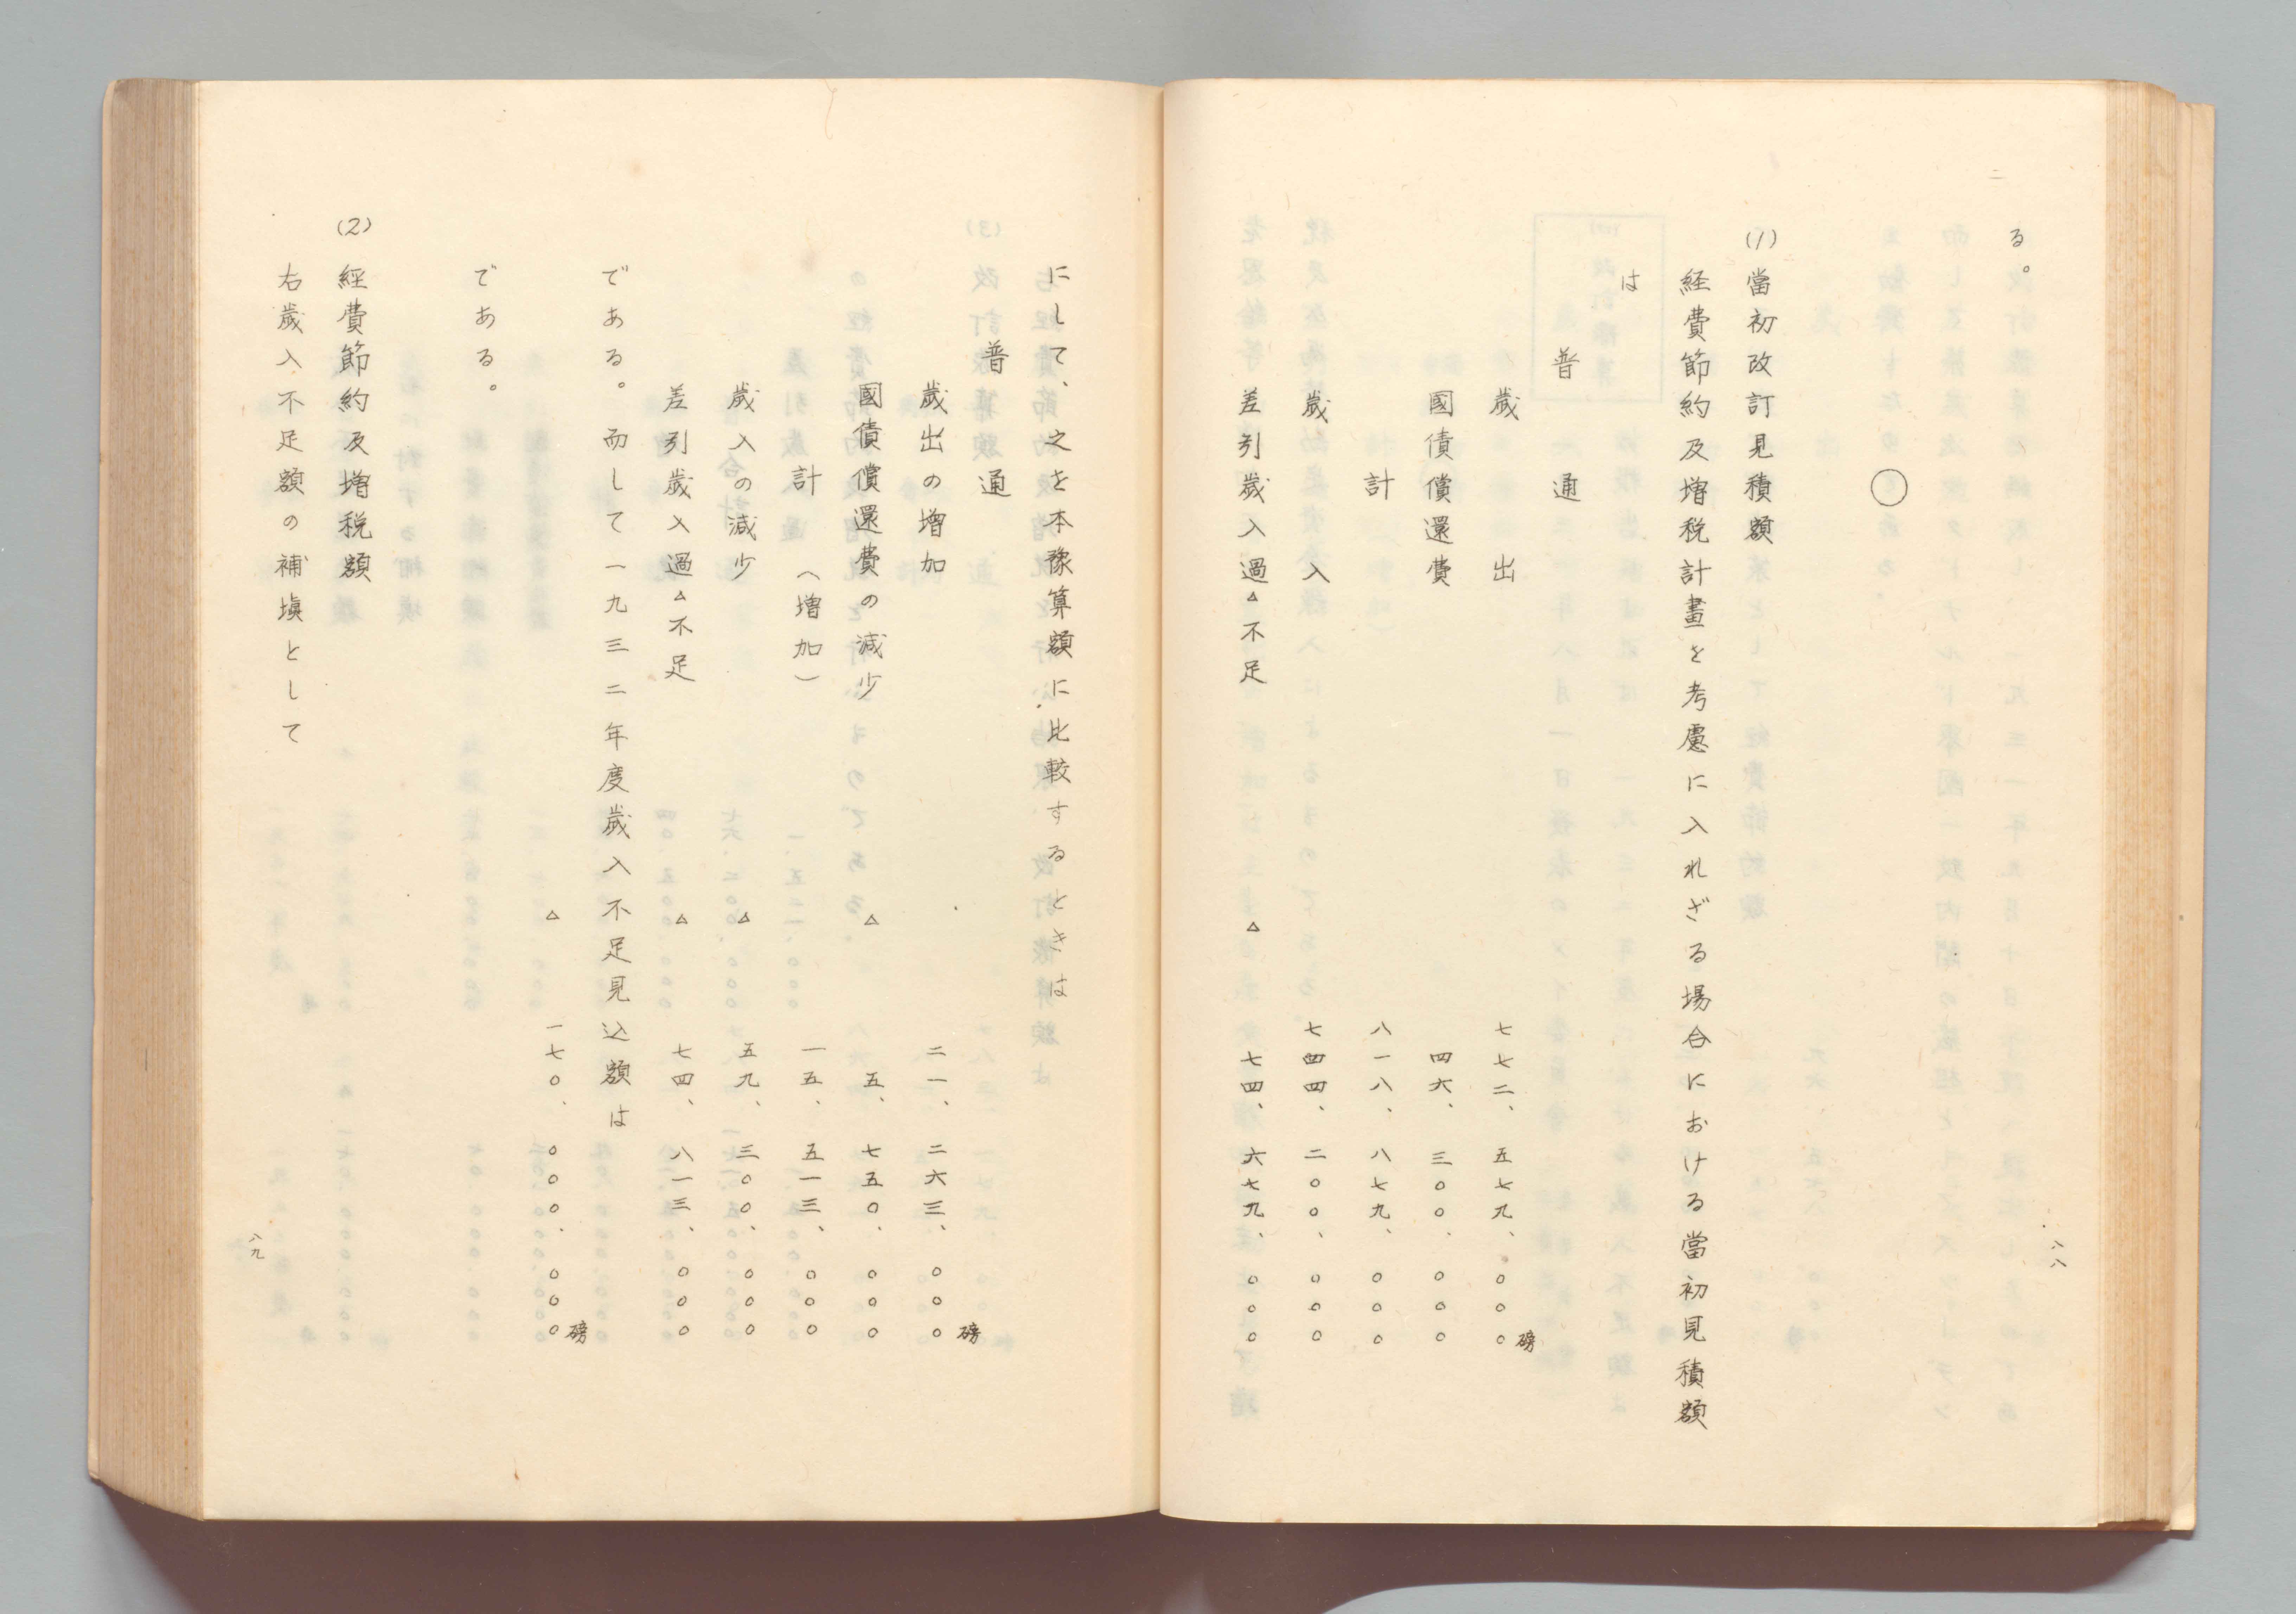 八八
る。
◯
(1) 當初改訂見積額
経費節約及増税計畫を考慮に入れざる場合における當初見積額
は
普通歳出 七七二、五七九、〇〇〇磅
國債償還費 四六、三〇〇、〇〇〇
計 八一八、八七九、〇〇〇
歳入 七四四、二〇〇、〇〇〇
差引歳入過△不足 △ 七四、六七九、〇〇〇
にして、之を本豫算額に比較するときは
普通歳出の増加 二一、二六三、〇〇〇磅
國債償還費の減少 △ 五、七五〇、〇〇〇
計(増加) 一五、五一三、〇〇〇
歳入の減少 △ 五九、三〇〇、〇〇〇
差引歳入過△不足 △ 七四、八一三、〇〇〇
である。而して一九三二年度歳入不足見込額は
△ 一七〇、〇〇〇、〇〇〇磅
である。
(2) 經費節約及増税額
右歳入不足額の補塡として
八九